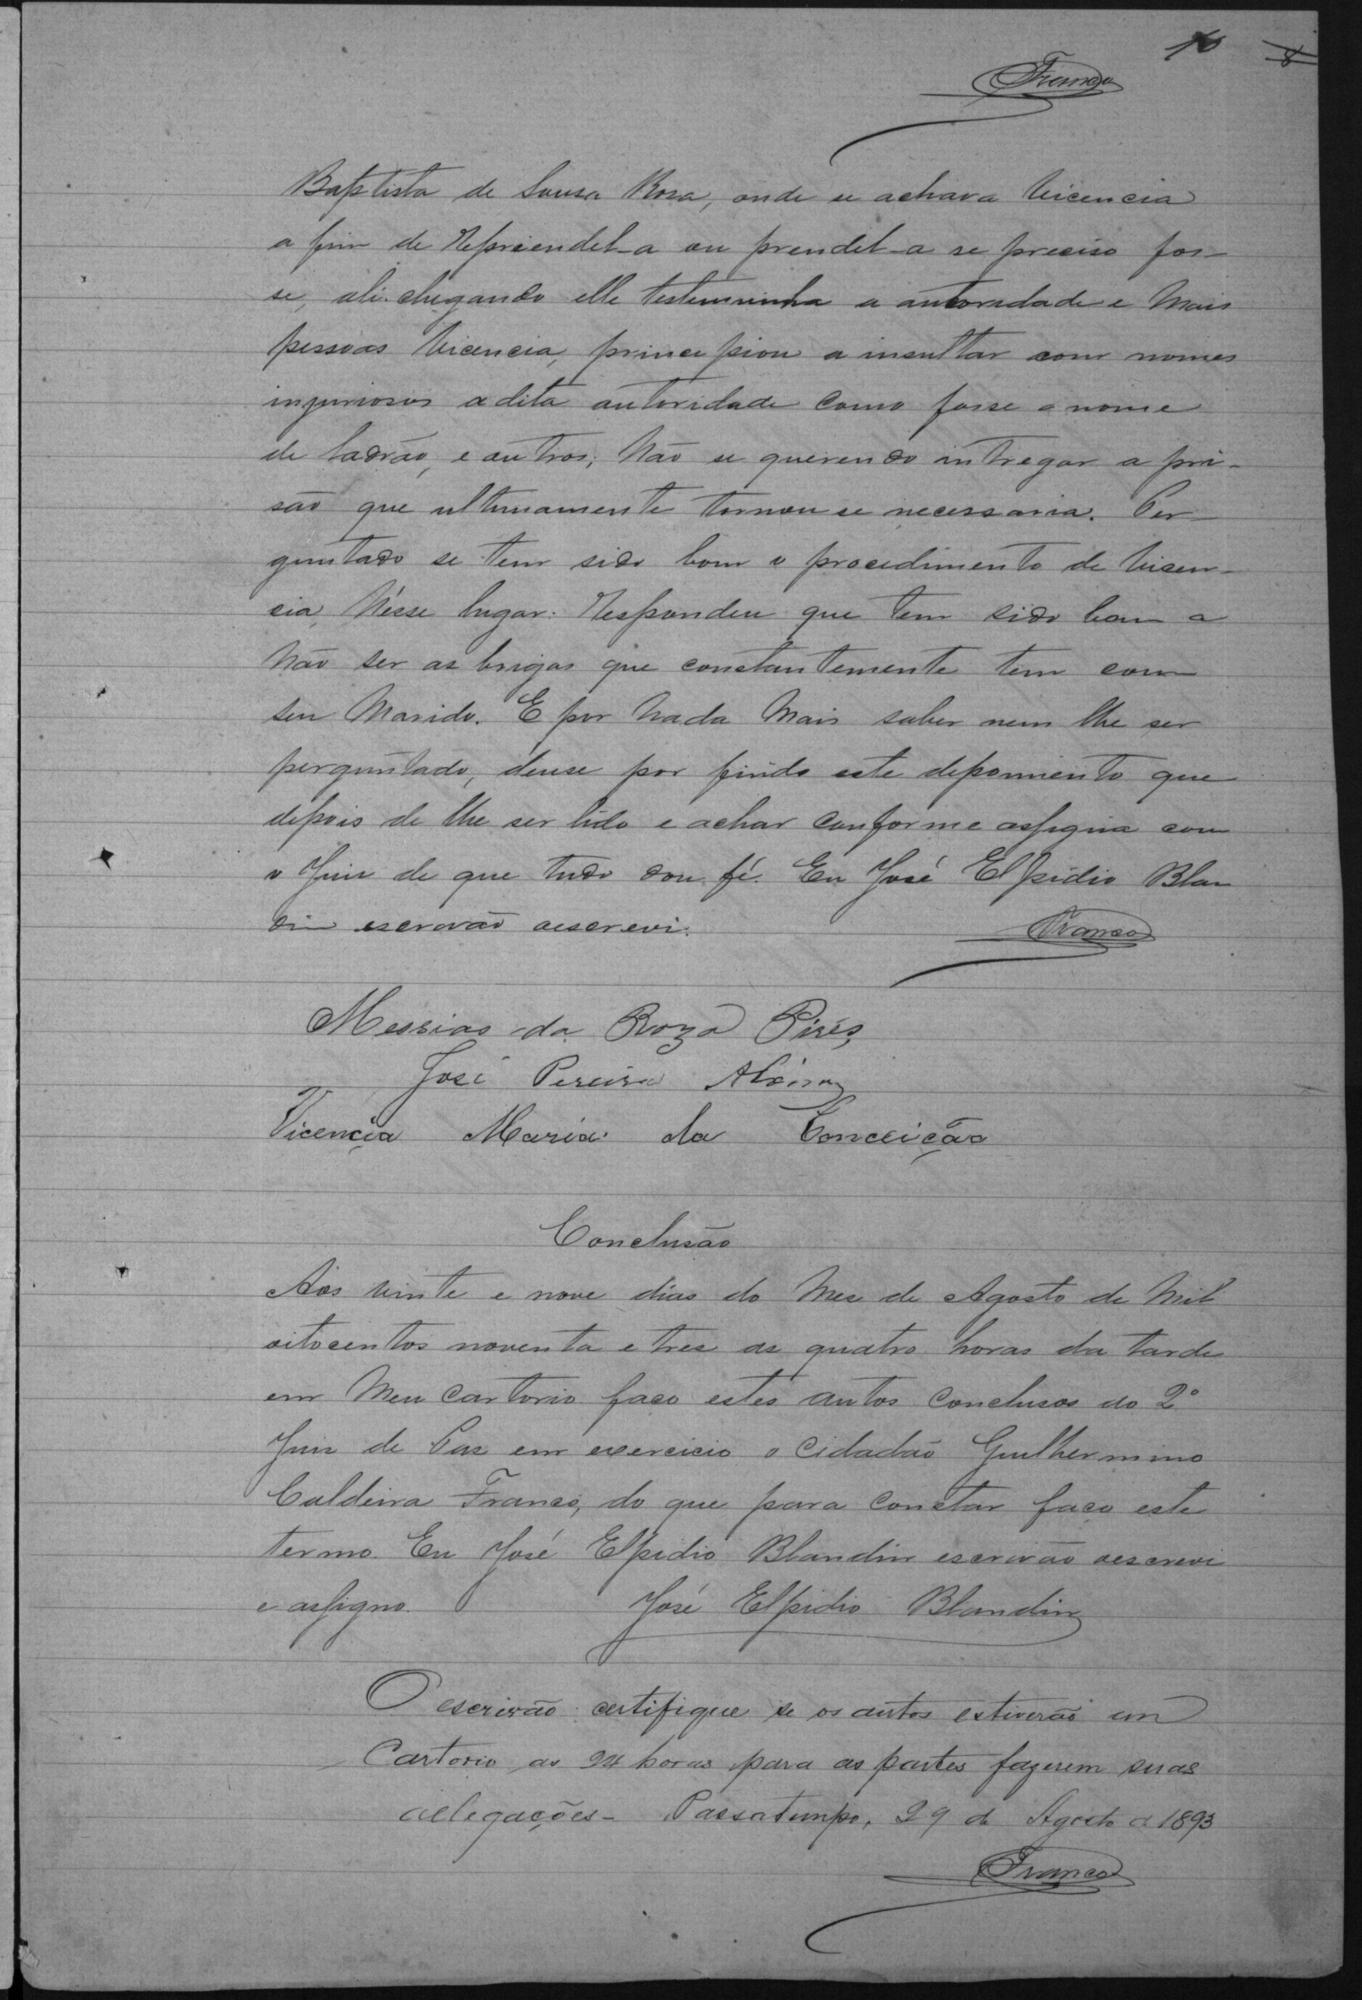 10 8
Franco
Baptista de Sousa Rosa, onde se achava Vicencia
a fim de reprendel-a ou prendel-a se preciso fos-
se, ali chegando elle testemunha a autoradade e mais
pessoas Vicencia, principiou a insultar com nomes
injuriosos a dita autoridade como fosse o nome
de ladrão, e outros, não se querendo intregar a pri-
são que ultimamente tornou se necessaria. Per-
guntado se tem sido bom o procedimento de Vicen-
cia, nésse lugar. Respondeu que tem sido bom a
não ser as brigas que constantemente tem com
seu marido. E por nada mais saber nem lhe ser
perguntado, deuse por findo este depoimento que
depois de lhe ser lido e achar conforme assigna com
o Juiz de que tudo dou fé. Eu José Elpidio Blan
din escrivão oescrevi.
Franco
Messias da Roza Pires
José Pereira
Vicencia Maria da Conceição
Conclusão
Aos vinte e nove dias do mez de Agosto de mil
oitocentos noventa e tres as quatro horas da tarde
em meu cartorio faço estes autos conclusos ao 2º
Juiz de Paz em exercicio o cidadão Guilhermino
Caldeira Franco, do que para constar faço este
termo. Eu José Elpidio Blandin escrivão oescrevi
e assigno. José Elpidio Blandin
O escrivão certifique se os autos estiverão em
Cartorio as 24 horas para as partes fazerem suas
allegações - Passatempo, 29 de Agosto de 1893
Franco